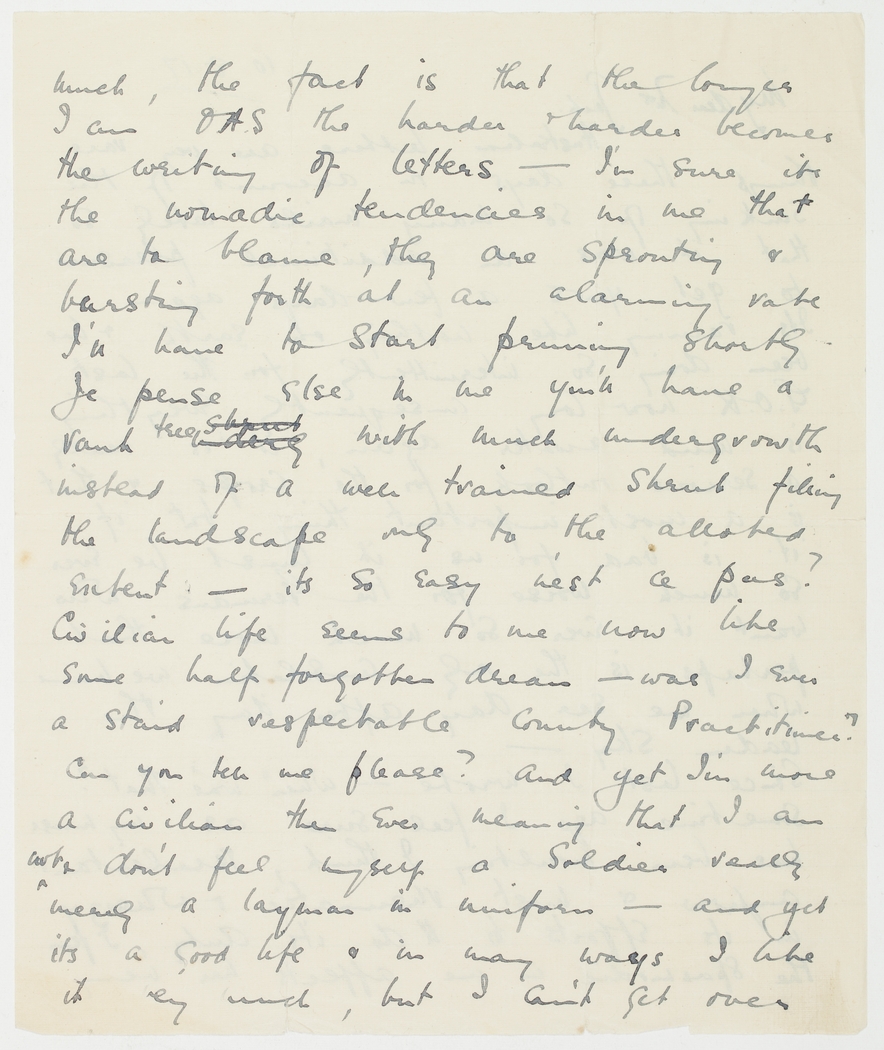 much, the fact is that the longer
I am OAS the harder & harder becomes
the writing of letters — I'm sure its
the nomadic tendencies in me that
are to blame, they are sprouting &
bursting forth at an alarming rate
I'll have to start pruning shortly.
Je pense else in me you'll have a
rank tree shrub underg with much undergrowth
instead of a well trained shrub filling
the landscape only to the alloted
extent. — its so easy n'est ce pas?
Civilian life seems to me now like
some half forgotten dream — was I ever
a staid respectable County Practitioner?
Can you tell me please? And yet I'm more
a civilian then ever meaning that I am
not & don't feel myself a Soldier really
merely a layman in uniform — and yet
its a good life & in many ways I like
it very much, but I can't get over